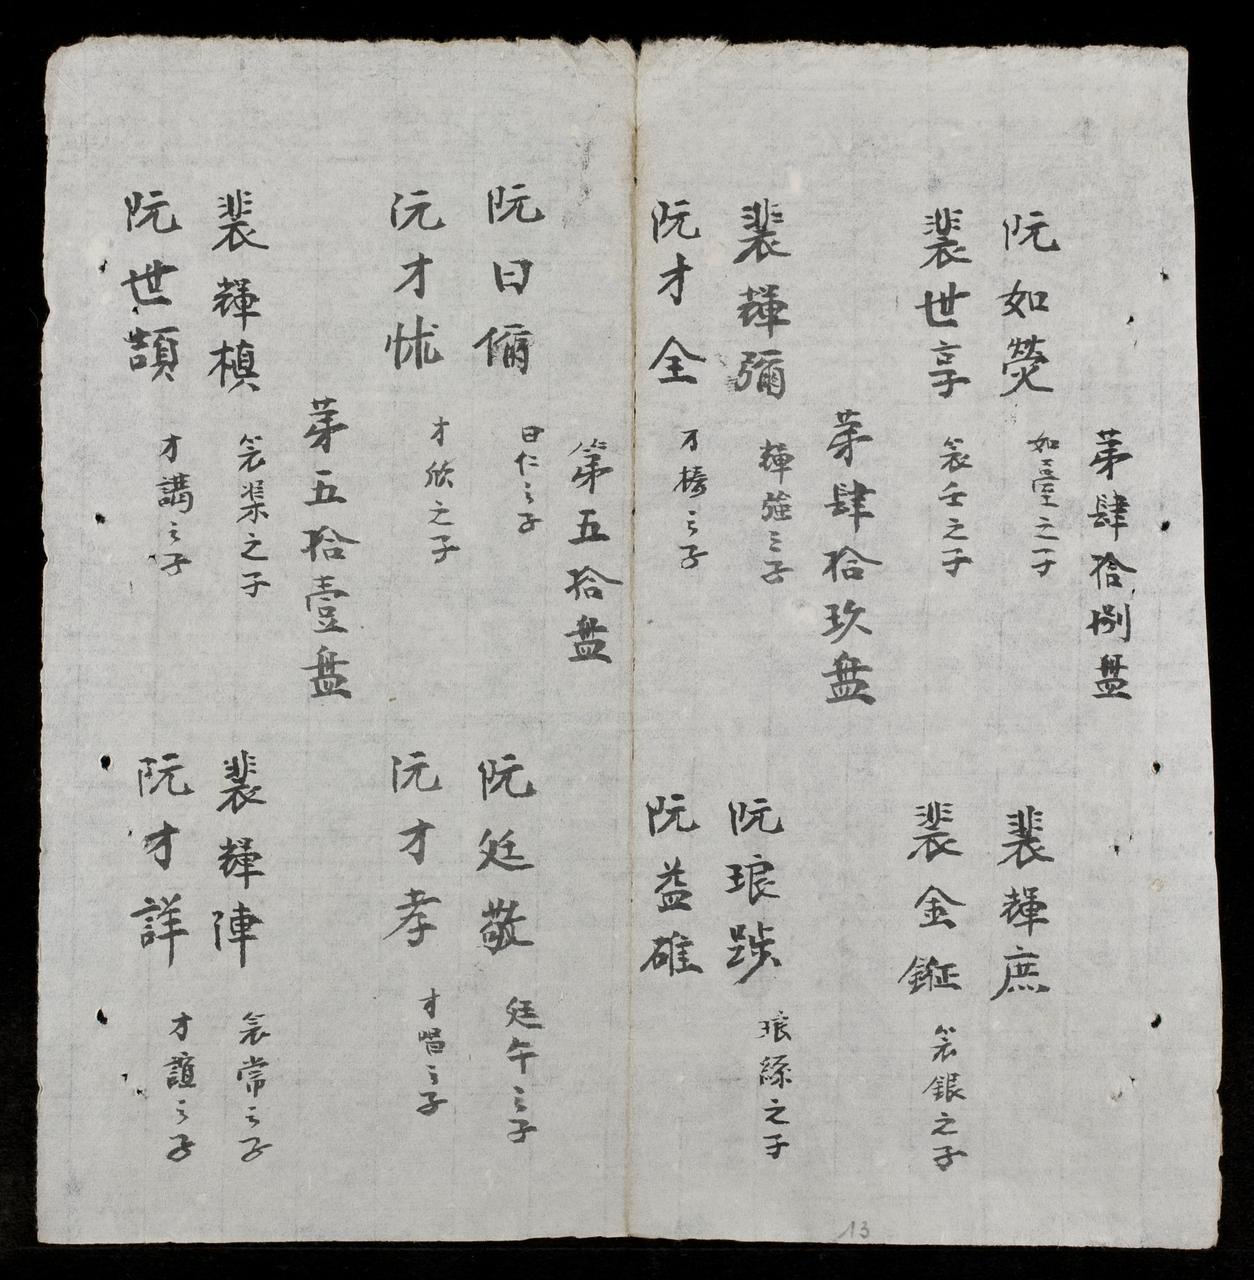 第肆拾捌盘
阮如熒 如臺之子
裴輝庶
裴世享 衮壬之子
裴金鉦 衮銀之子
第肆拾玖盘
裴輝彌 輝強之子
阮琅跌 琅絲之子
阮才全 才椿之子
阮益碓
第五拾盘
阮曰儞 曰仁之子
阮廷敬 廷午之子
阮才怵 才欣之子
阮才孝 才唱之子
第五拾壹盘
裴輝槙 衮渠之子
裴輝陣 衮常之子
阮世頡 才講之子
阮才詳 才誼之子
13